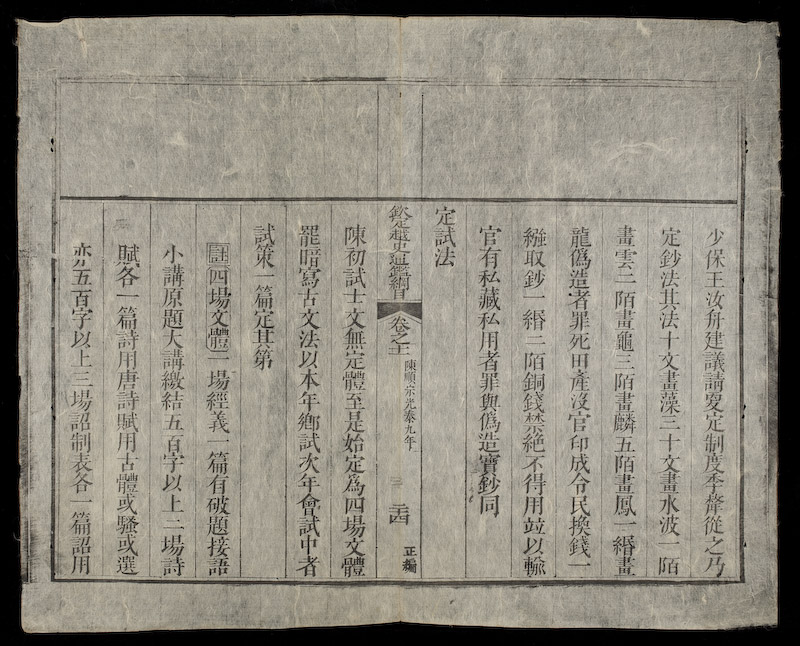 少保王汝舟建議請更定制度季犛從之乃
定鈔法其法十文畫藻三十文畫水波一陌
畫雲二陌畫龜三陌畫麟五陌畫鳳一緡畫
龍偽造者罪死田產沒官印成令民換錢一
繦取鈔一緡二陌銅錢禁絕不得用竝以輸
官有私藏私用者罪與偽造寶鈔同
定試法
欽定越史通鑑綱目 卷之十一 陳順宗光泰九年 二十四 正編
陳初試士文無定體至是始定爲四場文體
罷暗寫古文法以本年鄉試次年會試中者
試策一篇定其第
註四場文體一場經義一篇有破題接語
小講原題大講繳結五百字以上二場詩
賦各一篇詩用唐詩賦用古體或騷或選
亦五百字以上三場詔制表各一篇詔用